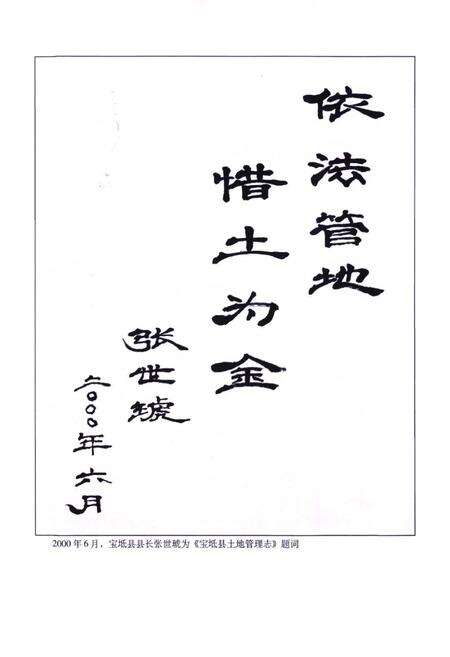 依法管地
惜土为金
张世琥
二〇〇〇年六月
2000年6月，宝坻县县长张世琥为《宝坻县土地管理志》题词